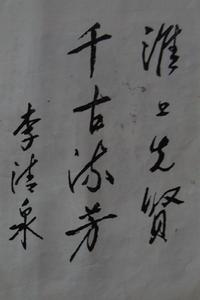 淮上先贤
千古流芳
李清泉